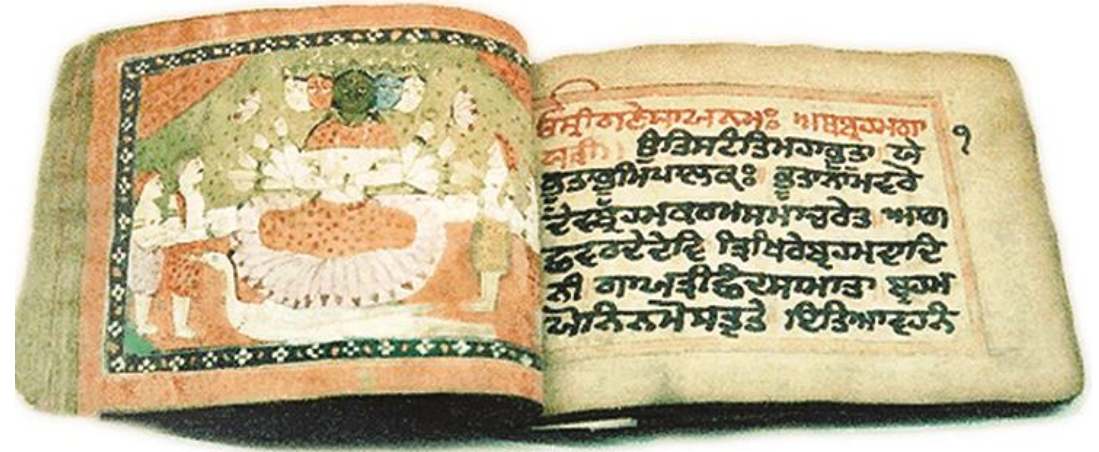 ਸ੍ਰੀਗਣੇਸਾਅਨਮਃ ਅਥਬ੍ਰਹਮਗਾ
ਉਤਿਸਟੰਤਿਮਹਾਭੂਤਾ ਯੇ
੧
ਭੂਤਾਭੂਮਿਪਾਲਕਃ ਭੂਤਾਨਾਮਵਰੋ
ਦੇਵਬ੍ਰਹਮਕਰਮਸਮਾਚਰੇਤ ਆਗ
ਛਵਰਦੇਦੇਵਿ ਤ੍ਰਿਖਿਰੇਬ੍ਰਹਮਵਾਦਿ
ਨੀ ਗਾਅਤ੍ਰੀਛੰਦਸਾਮਾਤਾ ਬ੍ਰਹਮ
ਯੋਨਿਨਮੋਸਤੁਤੇ ਇਤਿਆਵਾਹਨੰ